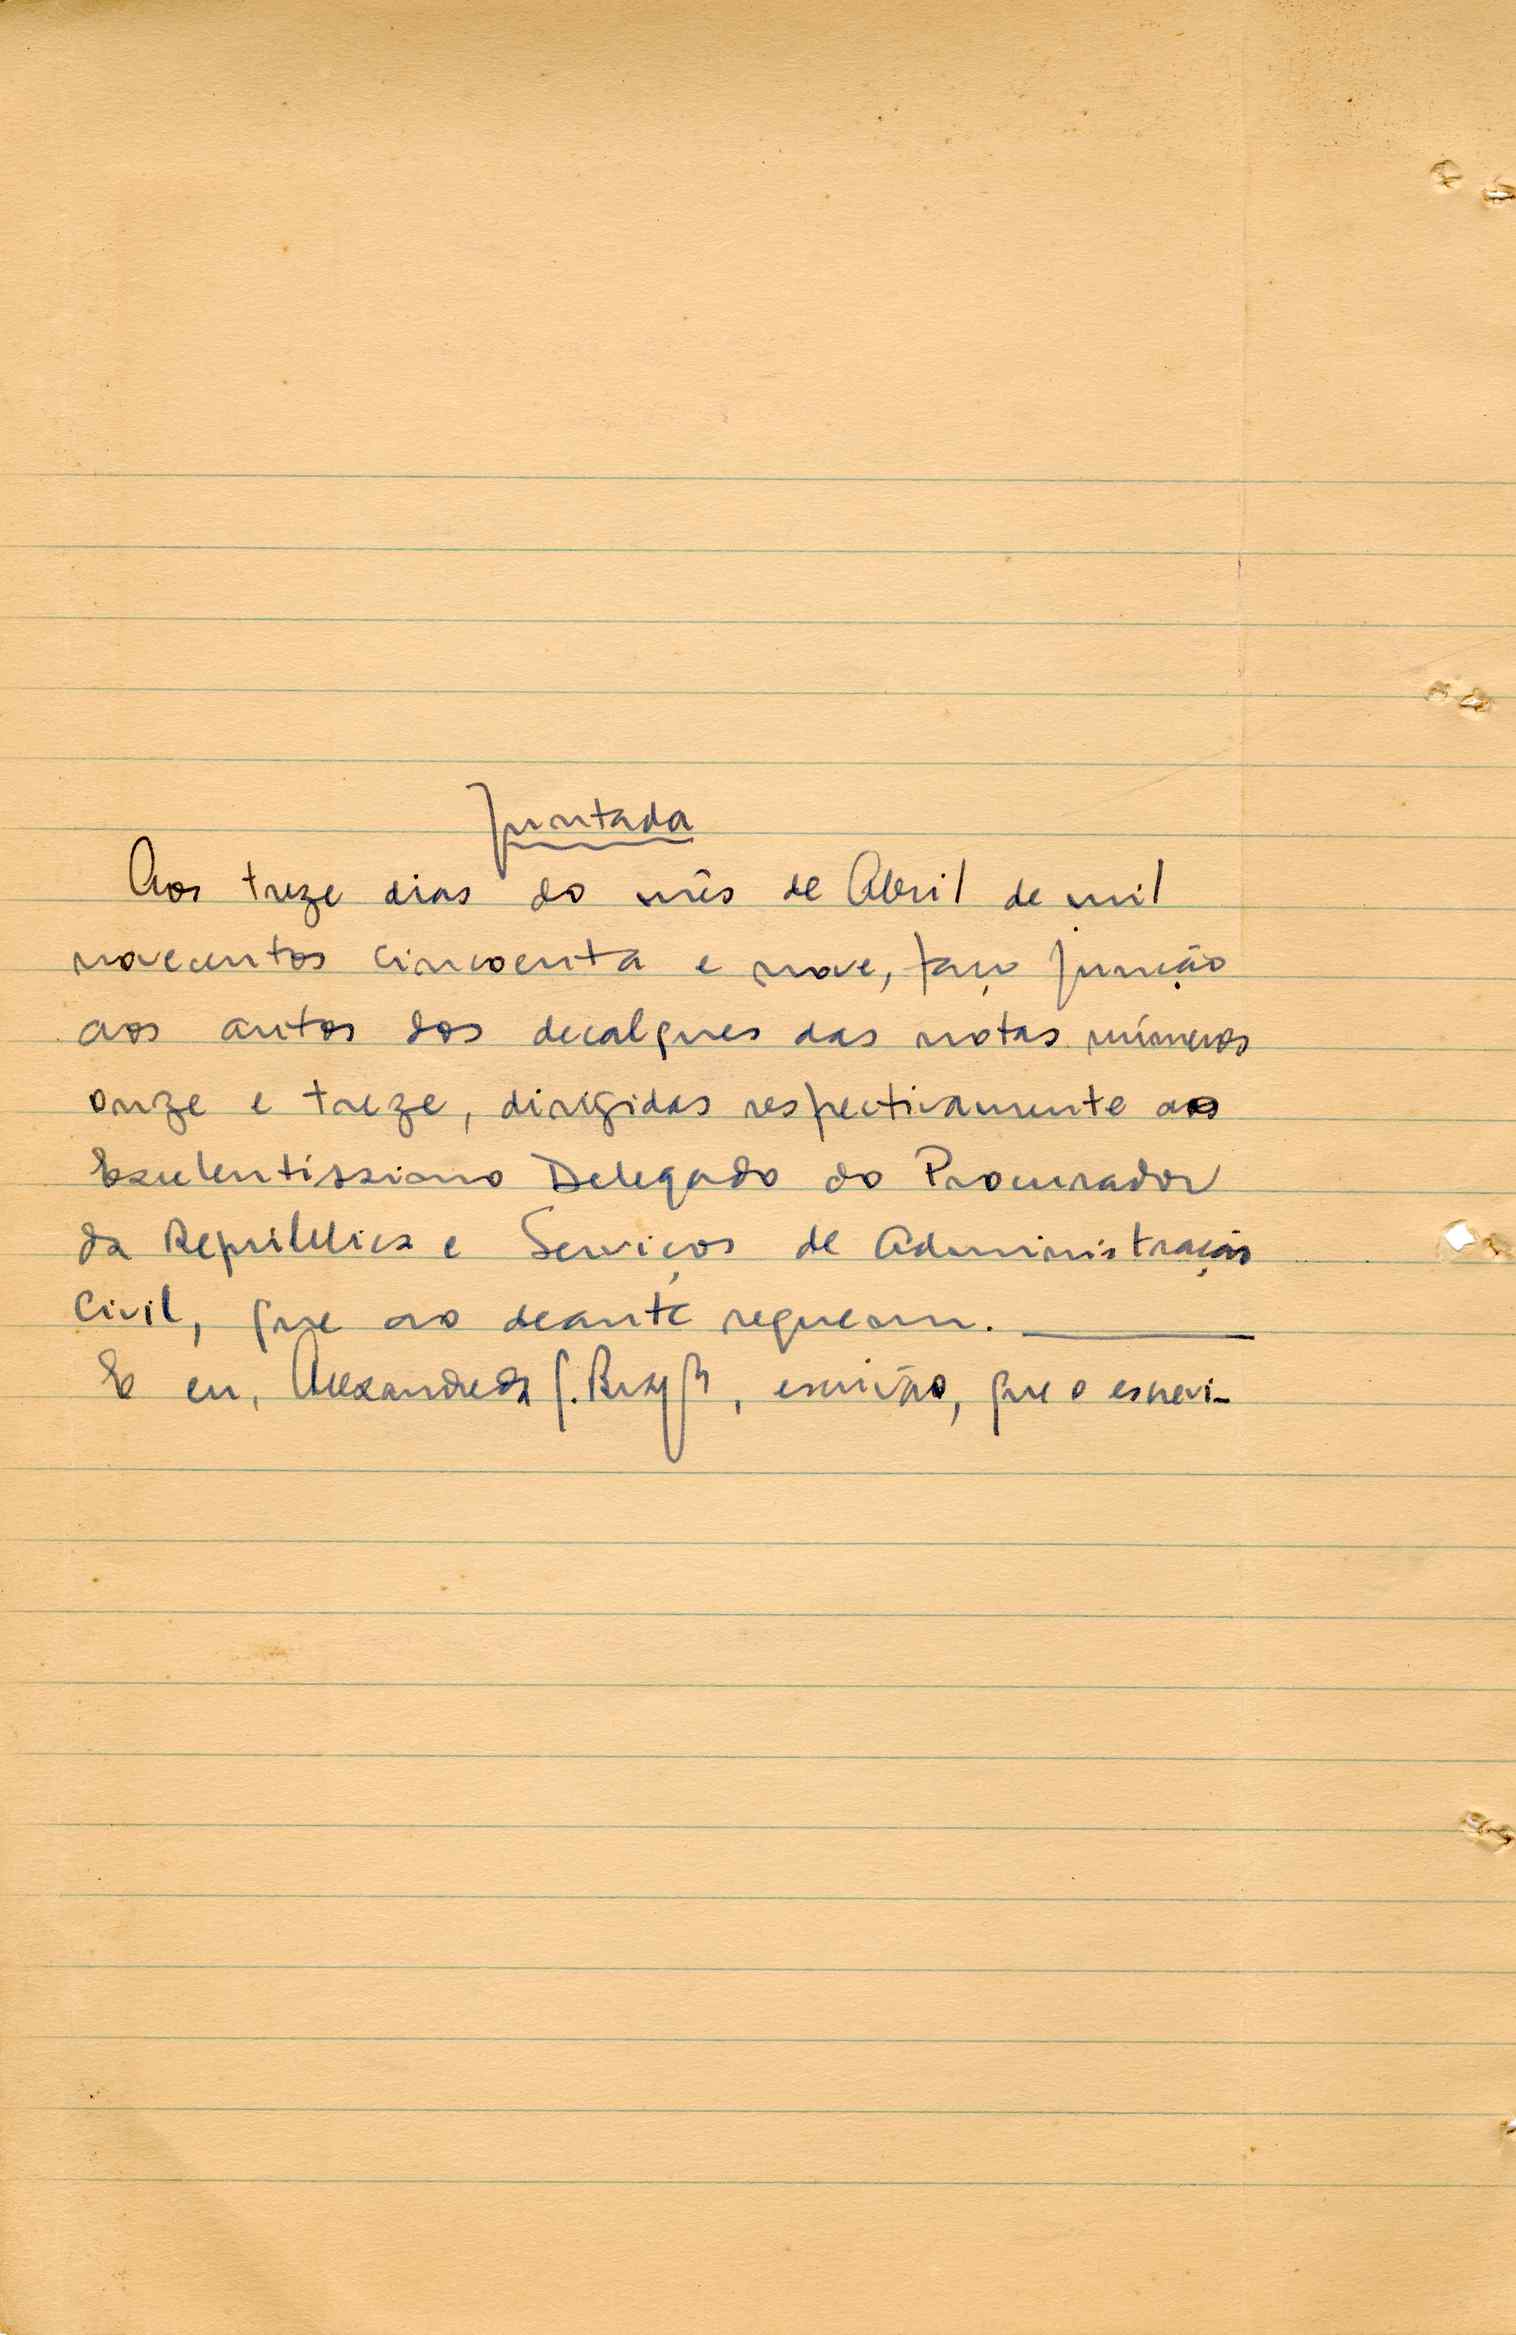 Juntada
Aos treze dias do mês de Abril de mil
novecentos cincoenta e nove, faço junção
aos autos dos decalques das notas números
onze e treze, dirigidas respectivamente aos
Excelentíssimo Delegado do Procurador
da República e Serviços de Administração
Civil, que ao deante requeam.
E eu, Alexandre da escrivão, que o escrevi-